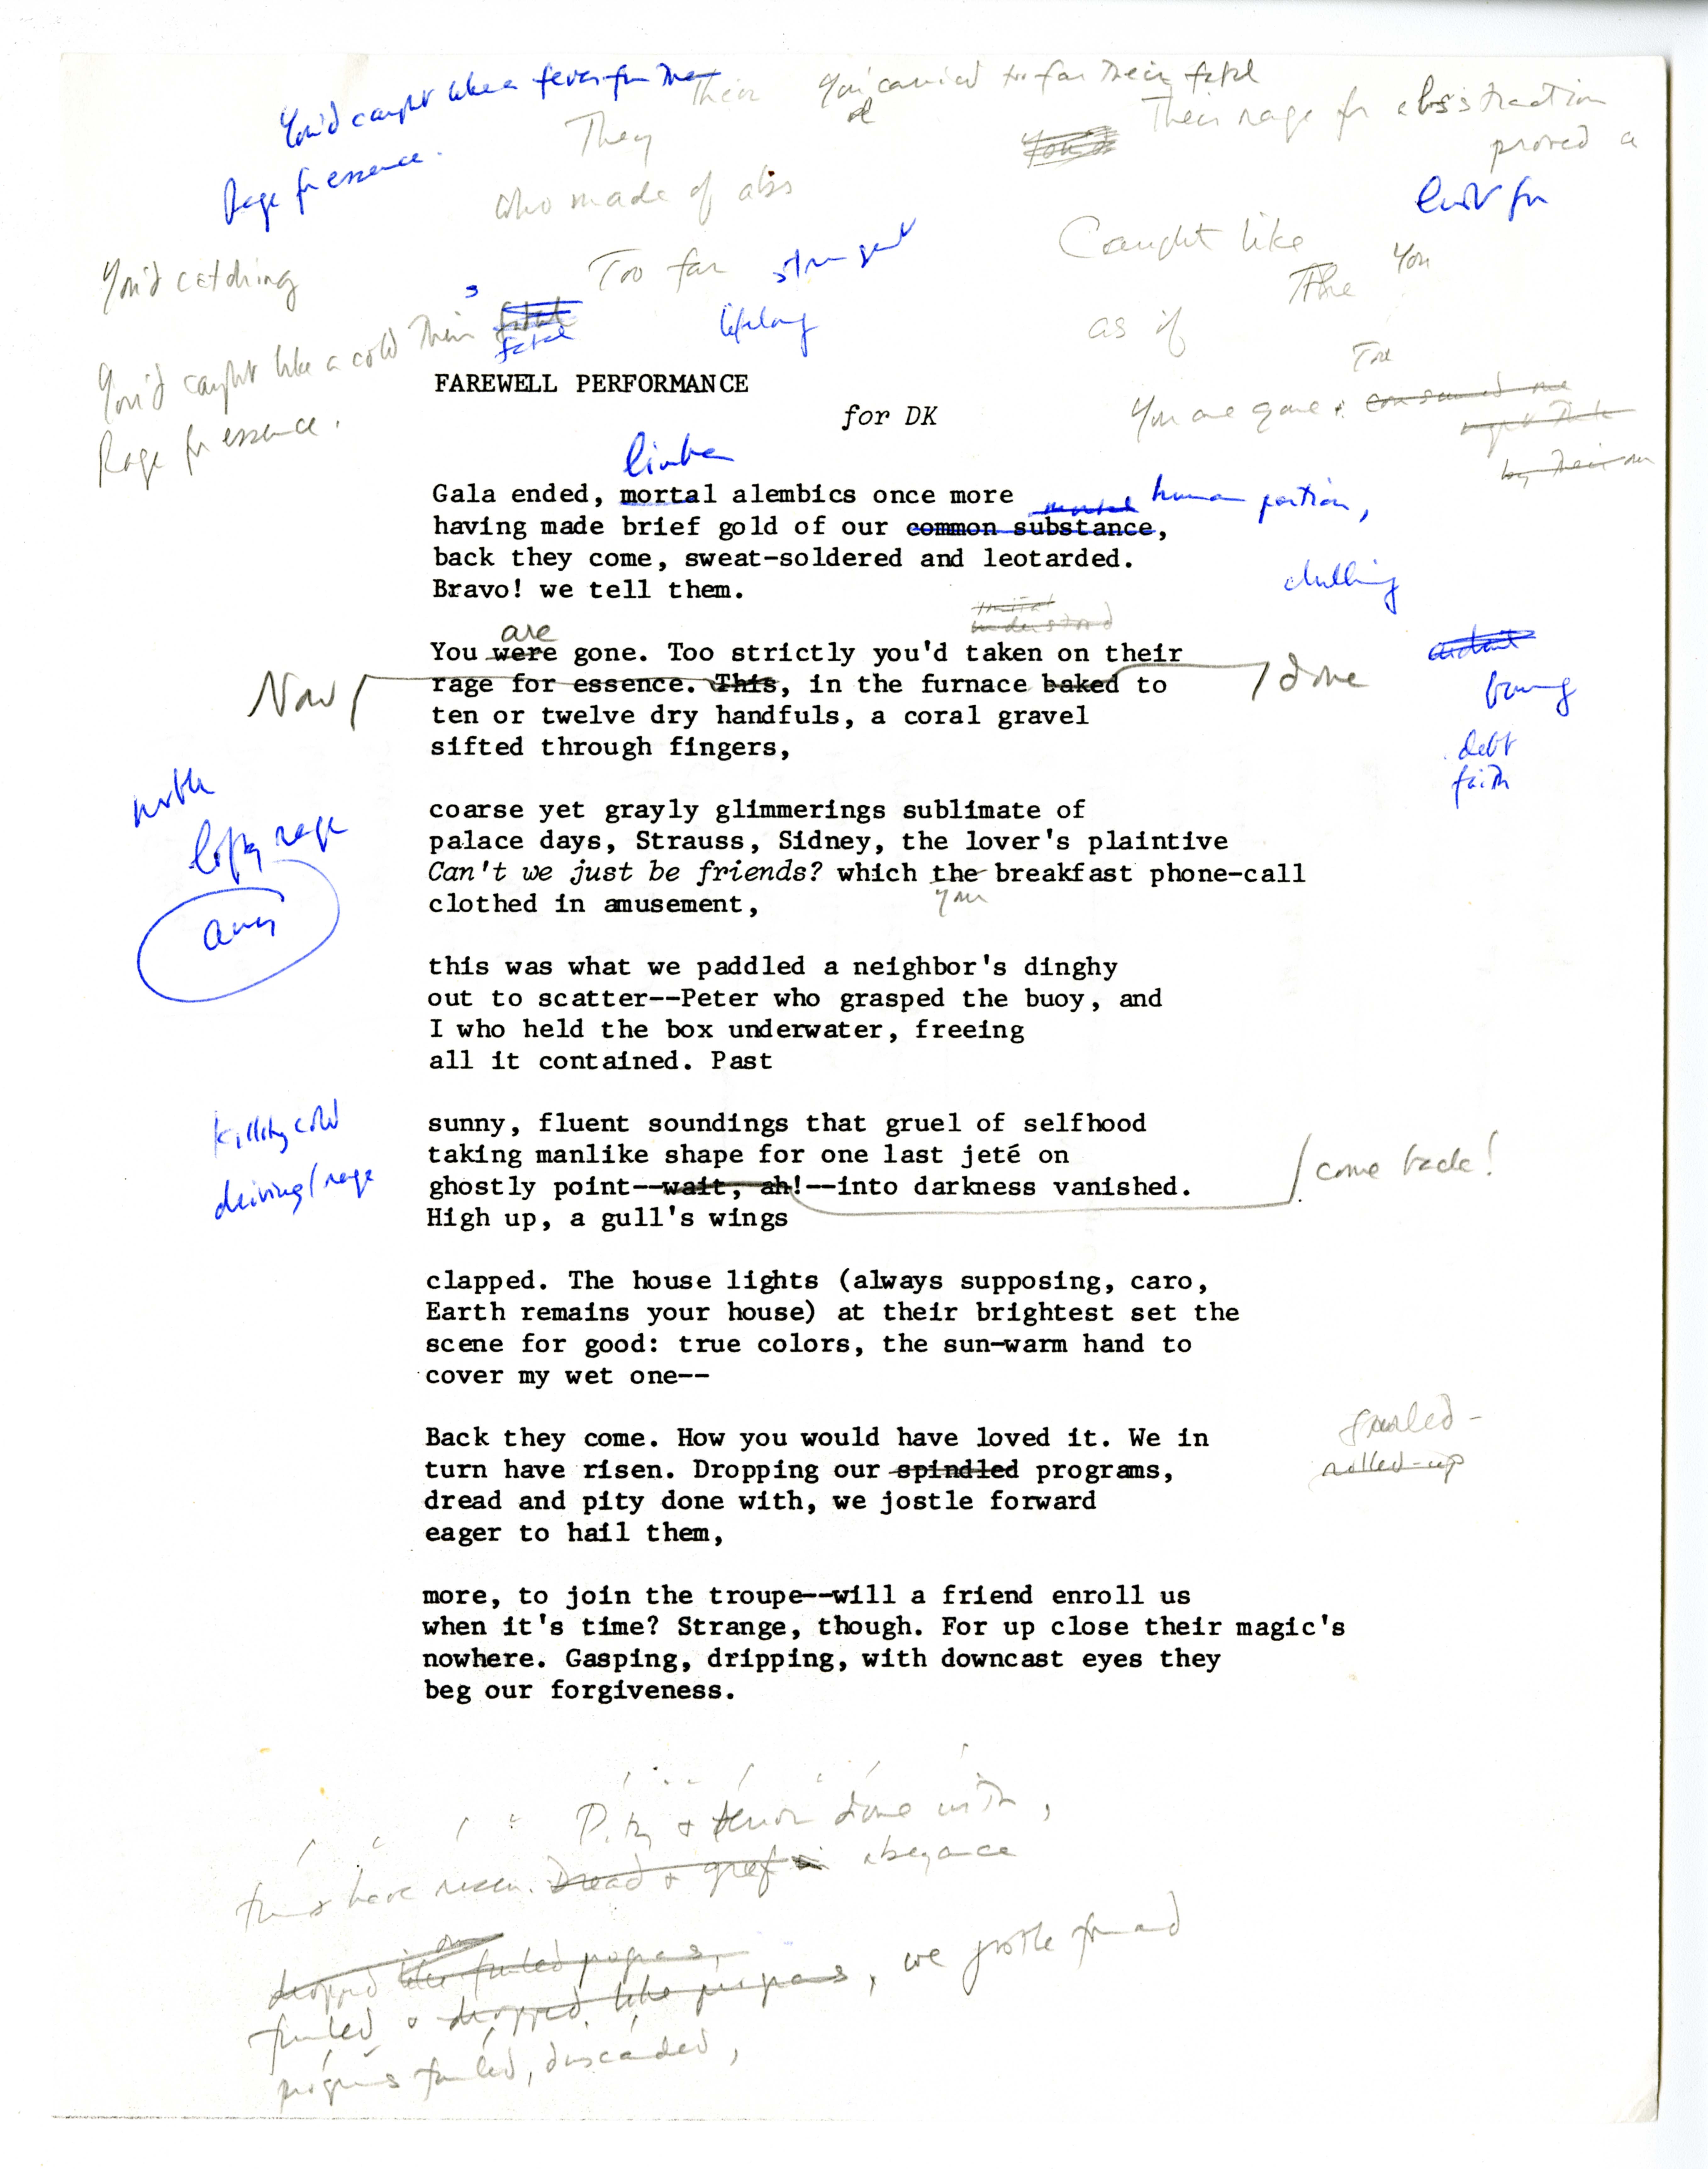 You'd caught like a fever from their
Rage for essence.
They
who made of abs
You'd carried too far their fatal
Their rage for abstraction
proved a
Caught like
The You
as if
You'd catching
Too far stringent
You'd caught like a cold their fatal
lifelong
Rage for essence.
You are gone
FAREWELL PERFORMANCE
for DK
limber
Gala ended, mortal alembics once more
human portion,
having made brief gold of our common substance,
back they come, sweat-soldered and leotarded.
Bravo! we tell them.
chilling
understood
are
You were gone. Too strictly you'd taken on their
Now rage for essence. This, in the furnace baked to done
ten or twelve dry handfuls, a coral gravel
sifted through fingers,
debt
faith
coarse yet grayly glimmerings sublimate of
palace days, Strauss, Sidney, the lover's plaintive
lofty rage
Can't we just be friends? which the breakfast phone-call
your
clothed in amusement,
this was what we paddled a neighbor's dinghy
out to scatter--Peter who grasped the buoy, and
I who held the box underwater, freeing
all it contained. Past
killing cold
driving rage
sunny, fluent soundings that gruel of selfhood
taking manlike shape for one last jeté on
ghostly point--wait, ah!--into darkness vanished.
come back!
High up, a gull's wings
clapped. The house lights (always supposing, caro,
Earth remains your house) at their brightest set the
scene for good: true colors, the sun-warm hand to
cover my wet one--
Back they come. How you would have loved it. We in
turn have risen. Dropping our spindled programs,
furled-
rolled-up
dread and pity done with, we jostle forward
eager to hail them,
more, to join the troupe--will a friend enroll us
when it's time? Strange, though. For up close their magic's
nowhere. Gasping, dripping, with downcast eyes they
beg our forgiveness.
Pity & terror done with,
turn have risen. Dread & grief in abeyance
dropped like furled programs,
furled & dropped like programs, we jostle forward
programs furled, discarded,